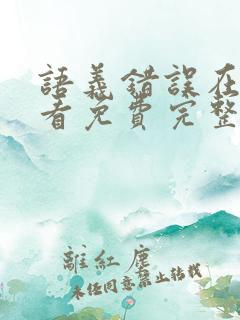 語義錯誤在
看免費完整
離紅塵
未经同意禁止转载